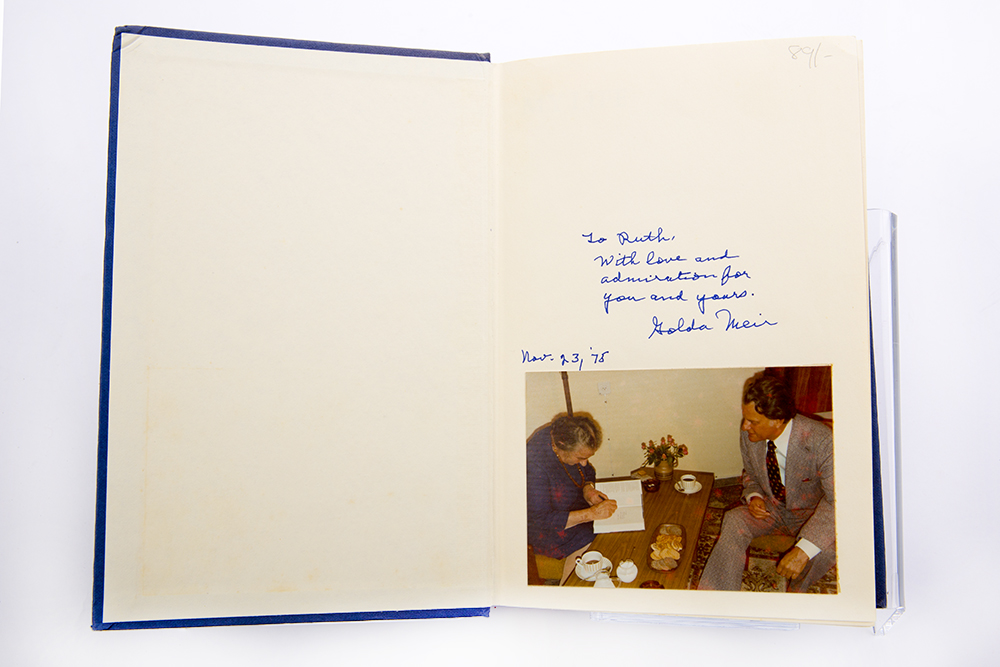 89/-
To Ruth,
With love and
admiration for
you and yours.
Golda Meir
Nov. 23, '75